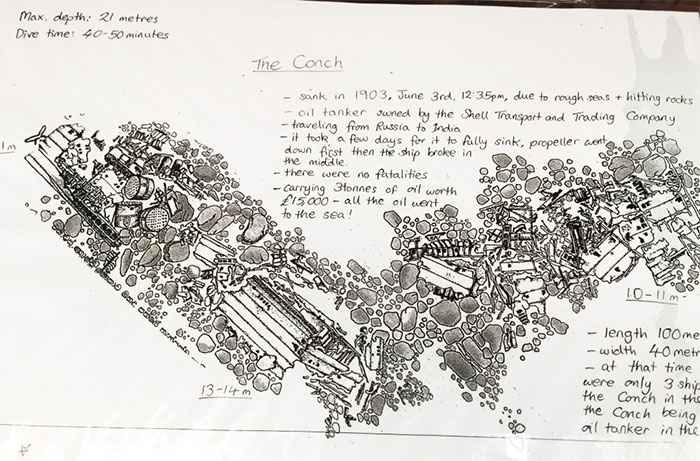 Max. depth: 21 metres
Dive time: 40-50 minutes
The Conch
- sank in 1903, June 3rd, 12:35pm, due to rough seas + hitting rocks
- oil tanker owned by the Shell Transport and Trading Company
- traveling from Russia to India
- it took a few days for it to fully sink, propeller went
down first then the ship broke in
the middle.
- there were no fatalities
- carrying 3tonnes of oil worth
£15,000 - all the oil went
to the sea!
1m
10-11m
13-14m
- length 100me
- width 40metr
- at that time
were only 3 ship
the Conch in this
the Conch being
oil tanker in the